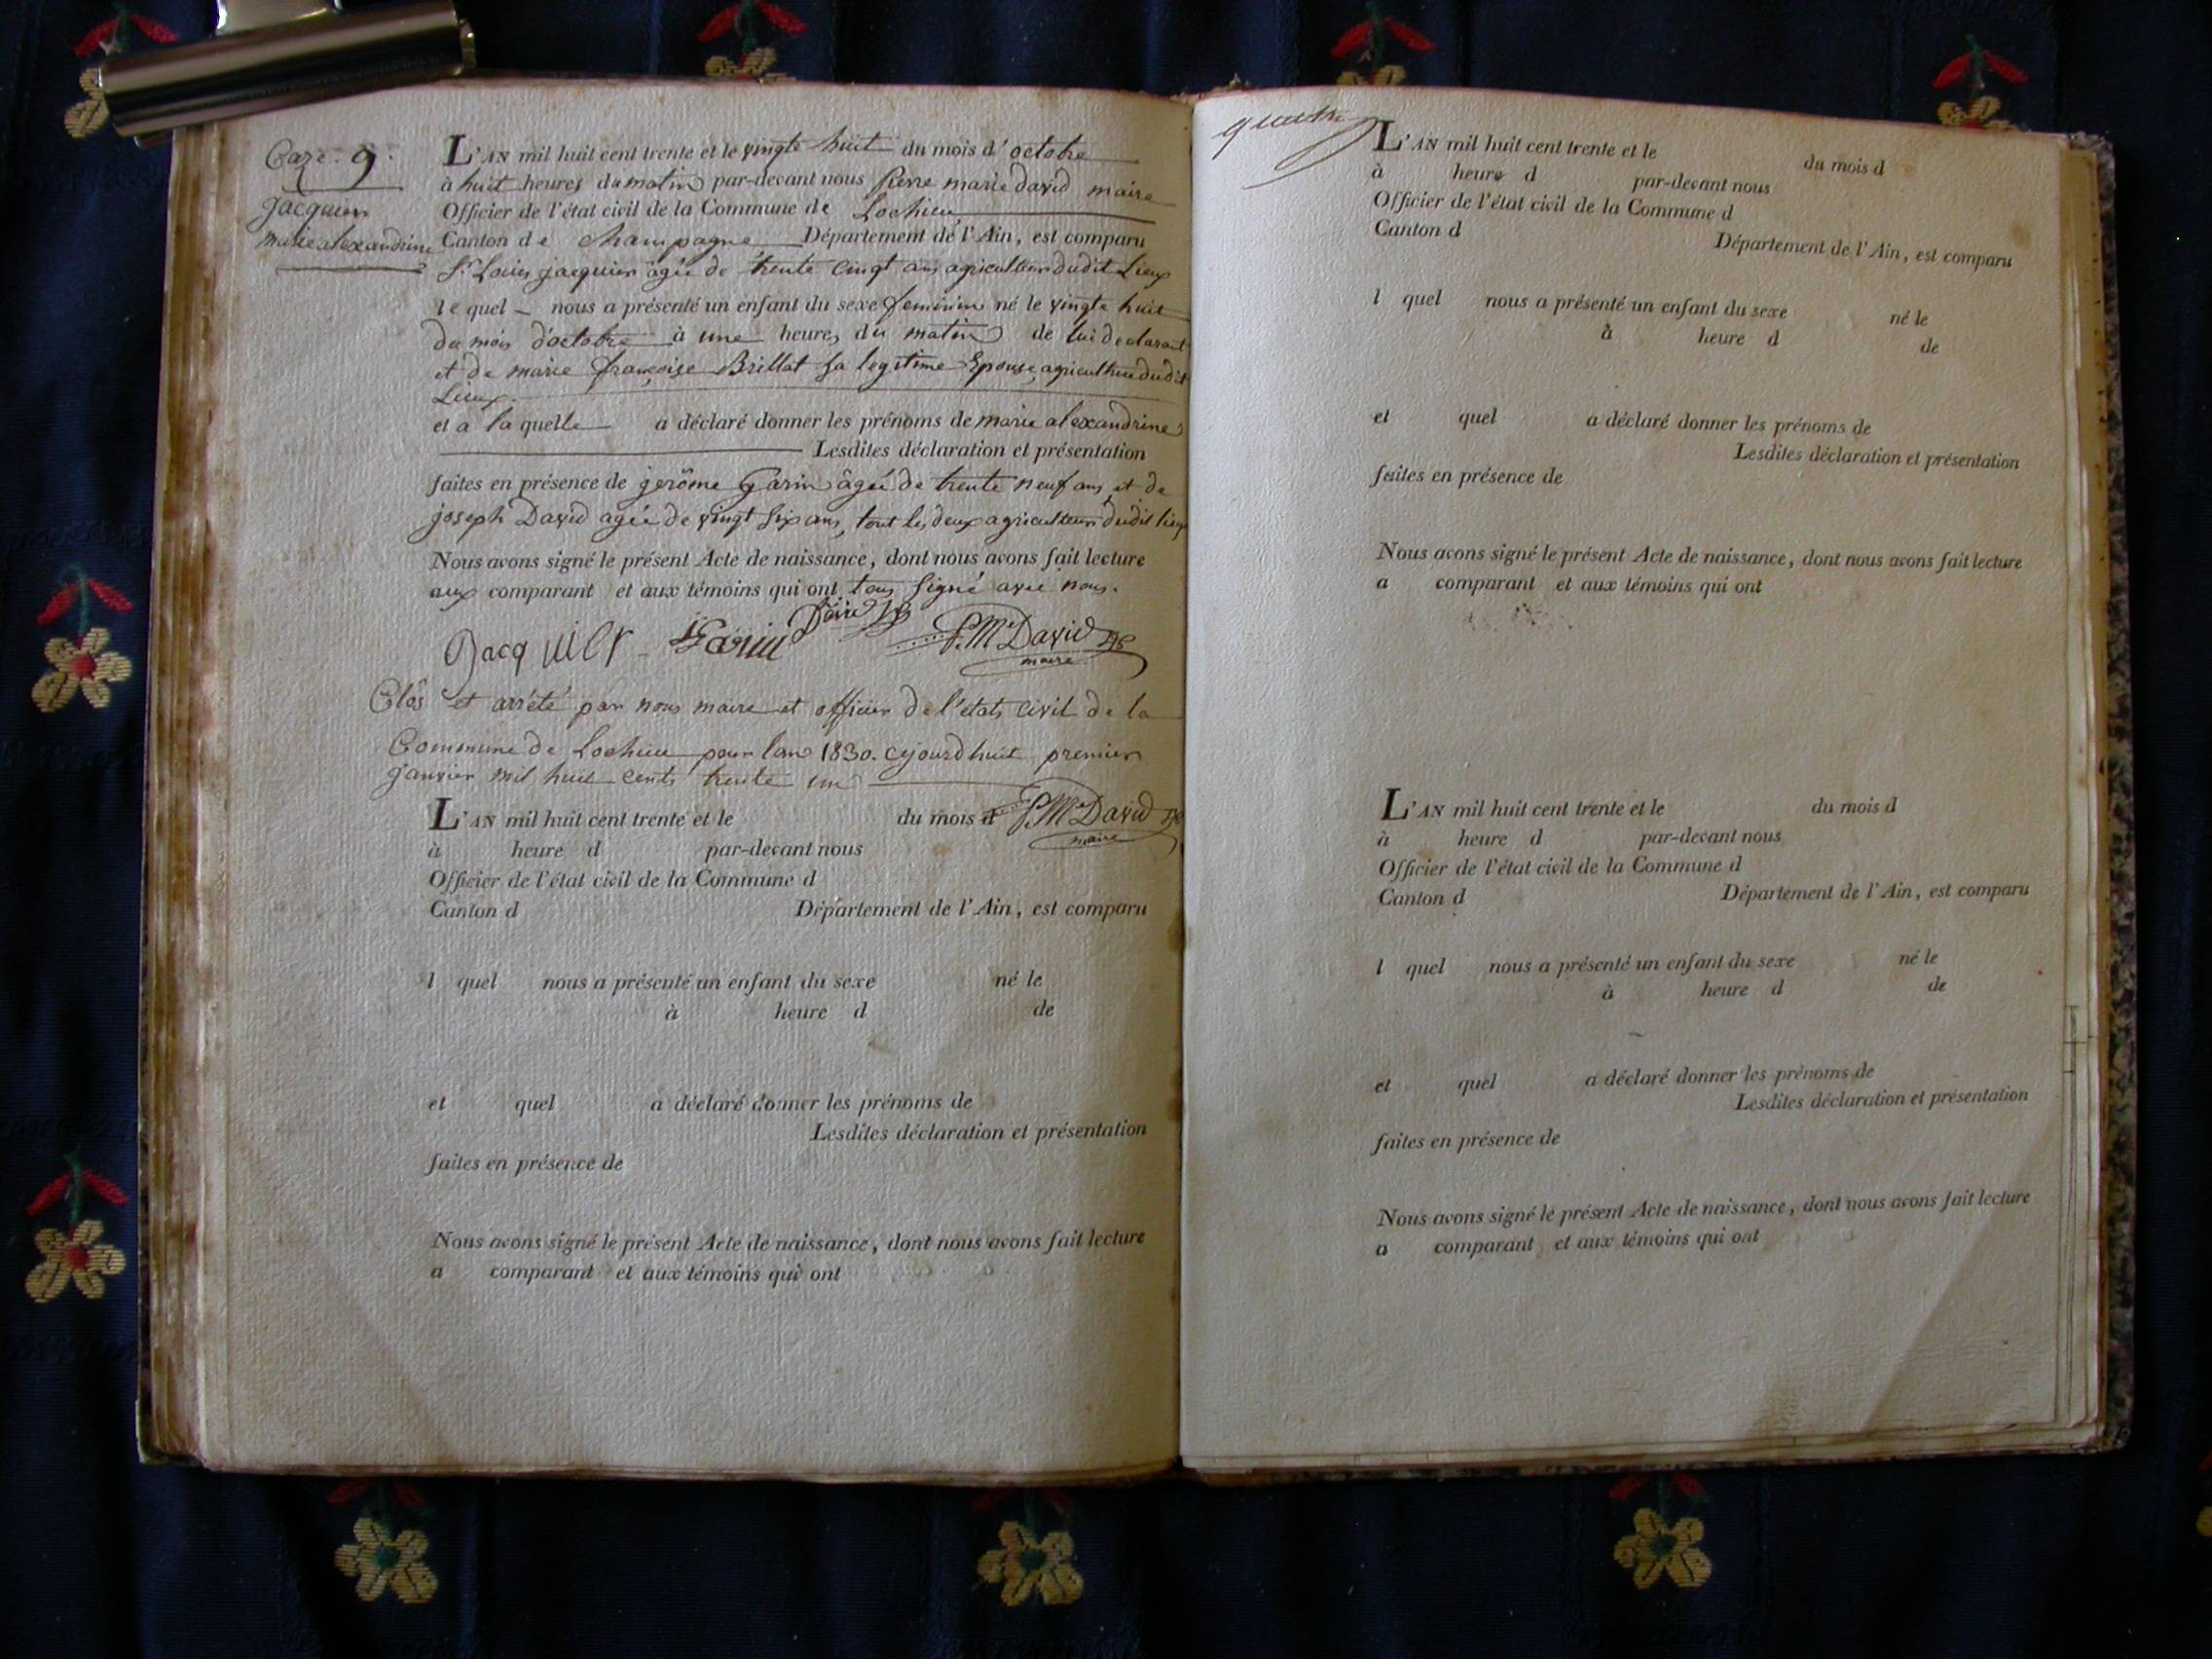 Caze. 9.
jacquier
marie alexandrine
L'AN mil huit cent trente et le vingte huit du mois d'octobre
à huit heures du matin par-devant nous Pierre marie david maire
Officier de l'état civil de la Commune de Lochieu
Canton de Champagne Département de l'Ain, est comparu
Sr Louis jacquier agée de trente cinqt ans agriculteur dudit Lieux
le quel nous a présenté un enfant du sexe feminin né le vingte huit
du mois d'octobre à une heures du matin de lui declarant
et de marie françoise Brillat sa legitime Epouse, agriculteur dudit
Lieux.
et a laquelle a déclaré donner les prénoms de marie alexandrine
Lesdites déclaration et présentation
faites en présence de jerôme Garin âgée de trente neuf ans et de
joseph David agée de vingt six ans, tout les deux agriculteurs dudit lieux
Nous avons signé le présent Acte de naissance, dont nous avons fait lecture
aux comparant et aux témoins qui ont tous signé avec nous.
Jacquier Garin David P.Me David
maire
Clos et arrété par nous maire et officier de l'états civil de la
Commune de Lochieu pour lan 1830. cejourdhuit premier
janvier mil huit cents trente un
P.Me David
maire
L'AN mil huit cent trente et le du mois d
à heure d par-devant nous
Officier de l'état civil de la Commune d
Canton d Département de l'Ain, est comparu
l quel nous a présenté un enfant du sexe né le
à heure d de
et quel a déclaré donner les prénoms de
Lesdites déclaration et présentation
faites en présence de
Nous avons signé le présent Acte de naissance, dont nous avons fait lecture
a comparant et aux témoins qui ont
L'AN mil huit cent trente et le du mois d
à heure d par-devant nous
Officier de l'état civil de la Commune d
Canton d Département de l'Ain, est comparu
l quel nous a présenté un enfant du sexe né le
à heure d de
et quel a déclaré donner les prénoms de
Lesdites déclaration et présentation
faites en présence de
Nous avons signé le présent Acte de naissance, dont nous avons fait lecture
a comparant et aux témoins qui ont
L'AN mil huit cent trente et le du mois d
à heure d par-devant nous
Officier de l'état civil de la Commune d
Canton d Département de l'Ain, est comparu
l quel nous a présenté un enfant du sexe né le
à heure d de
et quel a déclaré donner les prénoms de
Lesdites déclaration et présentation
faites en présence de
Nous avons signé le présent Acte de naissance, dont nous avons fait lecture
a comparant et aux témoins qui ont